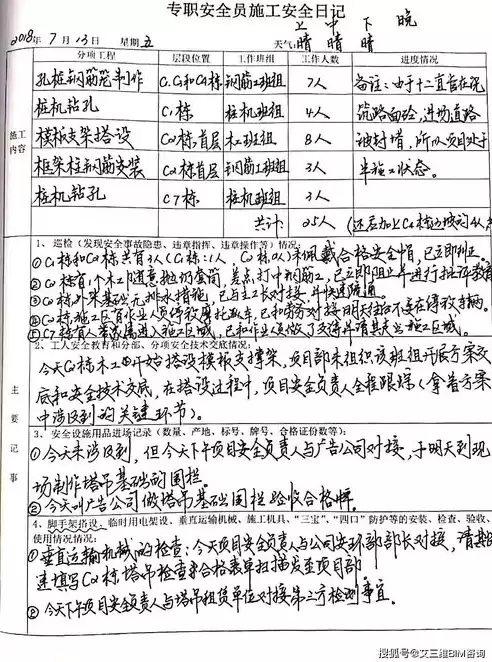 专职安全员施工安全日记
上 中 下 晚
2018年7月13日 星期五 天气: 晴 晴 晴
分项工程 层段位置 工作班组 工作人数 进度情况
施工内容
孔桩钢筋笼制作 钢筋工班组 7人 备注:由于十二直在沉
桩机钻孔 C1栋 桩机班组 4人 筑路面砼,进场道路
模板支架搭设 C2栋首层 木工班组 8人 被封堵,所以项目处于
框架柱钢筋安装 C2栋首层 钢筋工班组 3人 半施工状态。
桩机钻孔 C7栋 桩机班组 3人
共计: 25人
主要记事
1、巡检(发现安全事故隐患、违章指挥、违章操作等)情况:
①C1栋和C2栋共有3人(C1栋:1人,C2栋:2人)未佩戴合格安全帽,已立即纠正。
②C2栋有1个木工随意抛扔套筒,差点打中钢筋工,已立即阻止并进行批评教育
③C2栋外架基础无排水措施,已与主工长对接,并快速疏通。
④C2栋施工区有作业人员停放摩托车,已和劳务对接明天起不准在停放车辆。
⑤C7栋有人带家属进入施工区域,已和作业人员做了交待并请其走出施工区域。
2、工人安全教育和分部、分项安全技术交底情况:
今天C2栋木工开始搭设模板支撑架,项目部未组织该班组开展方案交
底和安全技术交底,在搭设过程中,项目安全负责人全程跟踪(拿着方案
中涉及到的关键环节)。
3、安全设施用品进场记录(数量、产地、标号、牌号、合格证份数等):
①今天未涉及到,但今天下午项目安全负责人与广告公司对接,于明天到现
场制作塔吊基础的围栏。
②今天叫广告公司做塔吊基础围栏验收合格牌。
4、脚手架搭设、临时用电架设、垂直运输机械、施工机具、“三宝”、“四口”防护等的安装、检查、验收、
使用情况情况:
①垂直运输机械的检查:今天项目安全负责人与公司安环部部长对接,请其
速填写C2栋塔吊检查合格表单扫描发至项目部。
②今天下午项目安全负责人与塔吊租赁单位对接第三方检测事宜。
搜狐号@艾三维BIM咨询